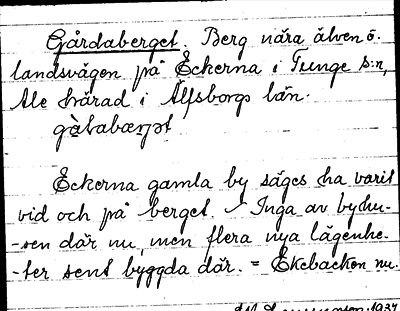 Gårdaberget. Berg nära älven ö.
landsvägen på Eckerna i Tunge s:n,
Ale härad i Älfsborgs län.
Eckerna gamla by säges ha varit
vid och på berget. Inga av byhu-
-sen där nu, men flera nya lägenhe-
-ter sent byggda där. = Ekebacken nu.
1937